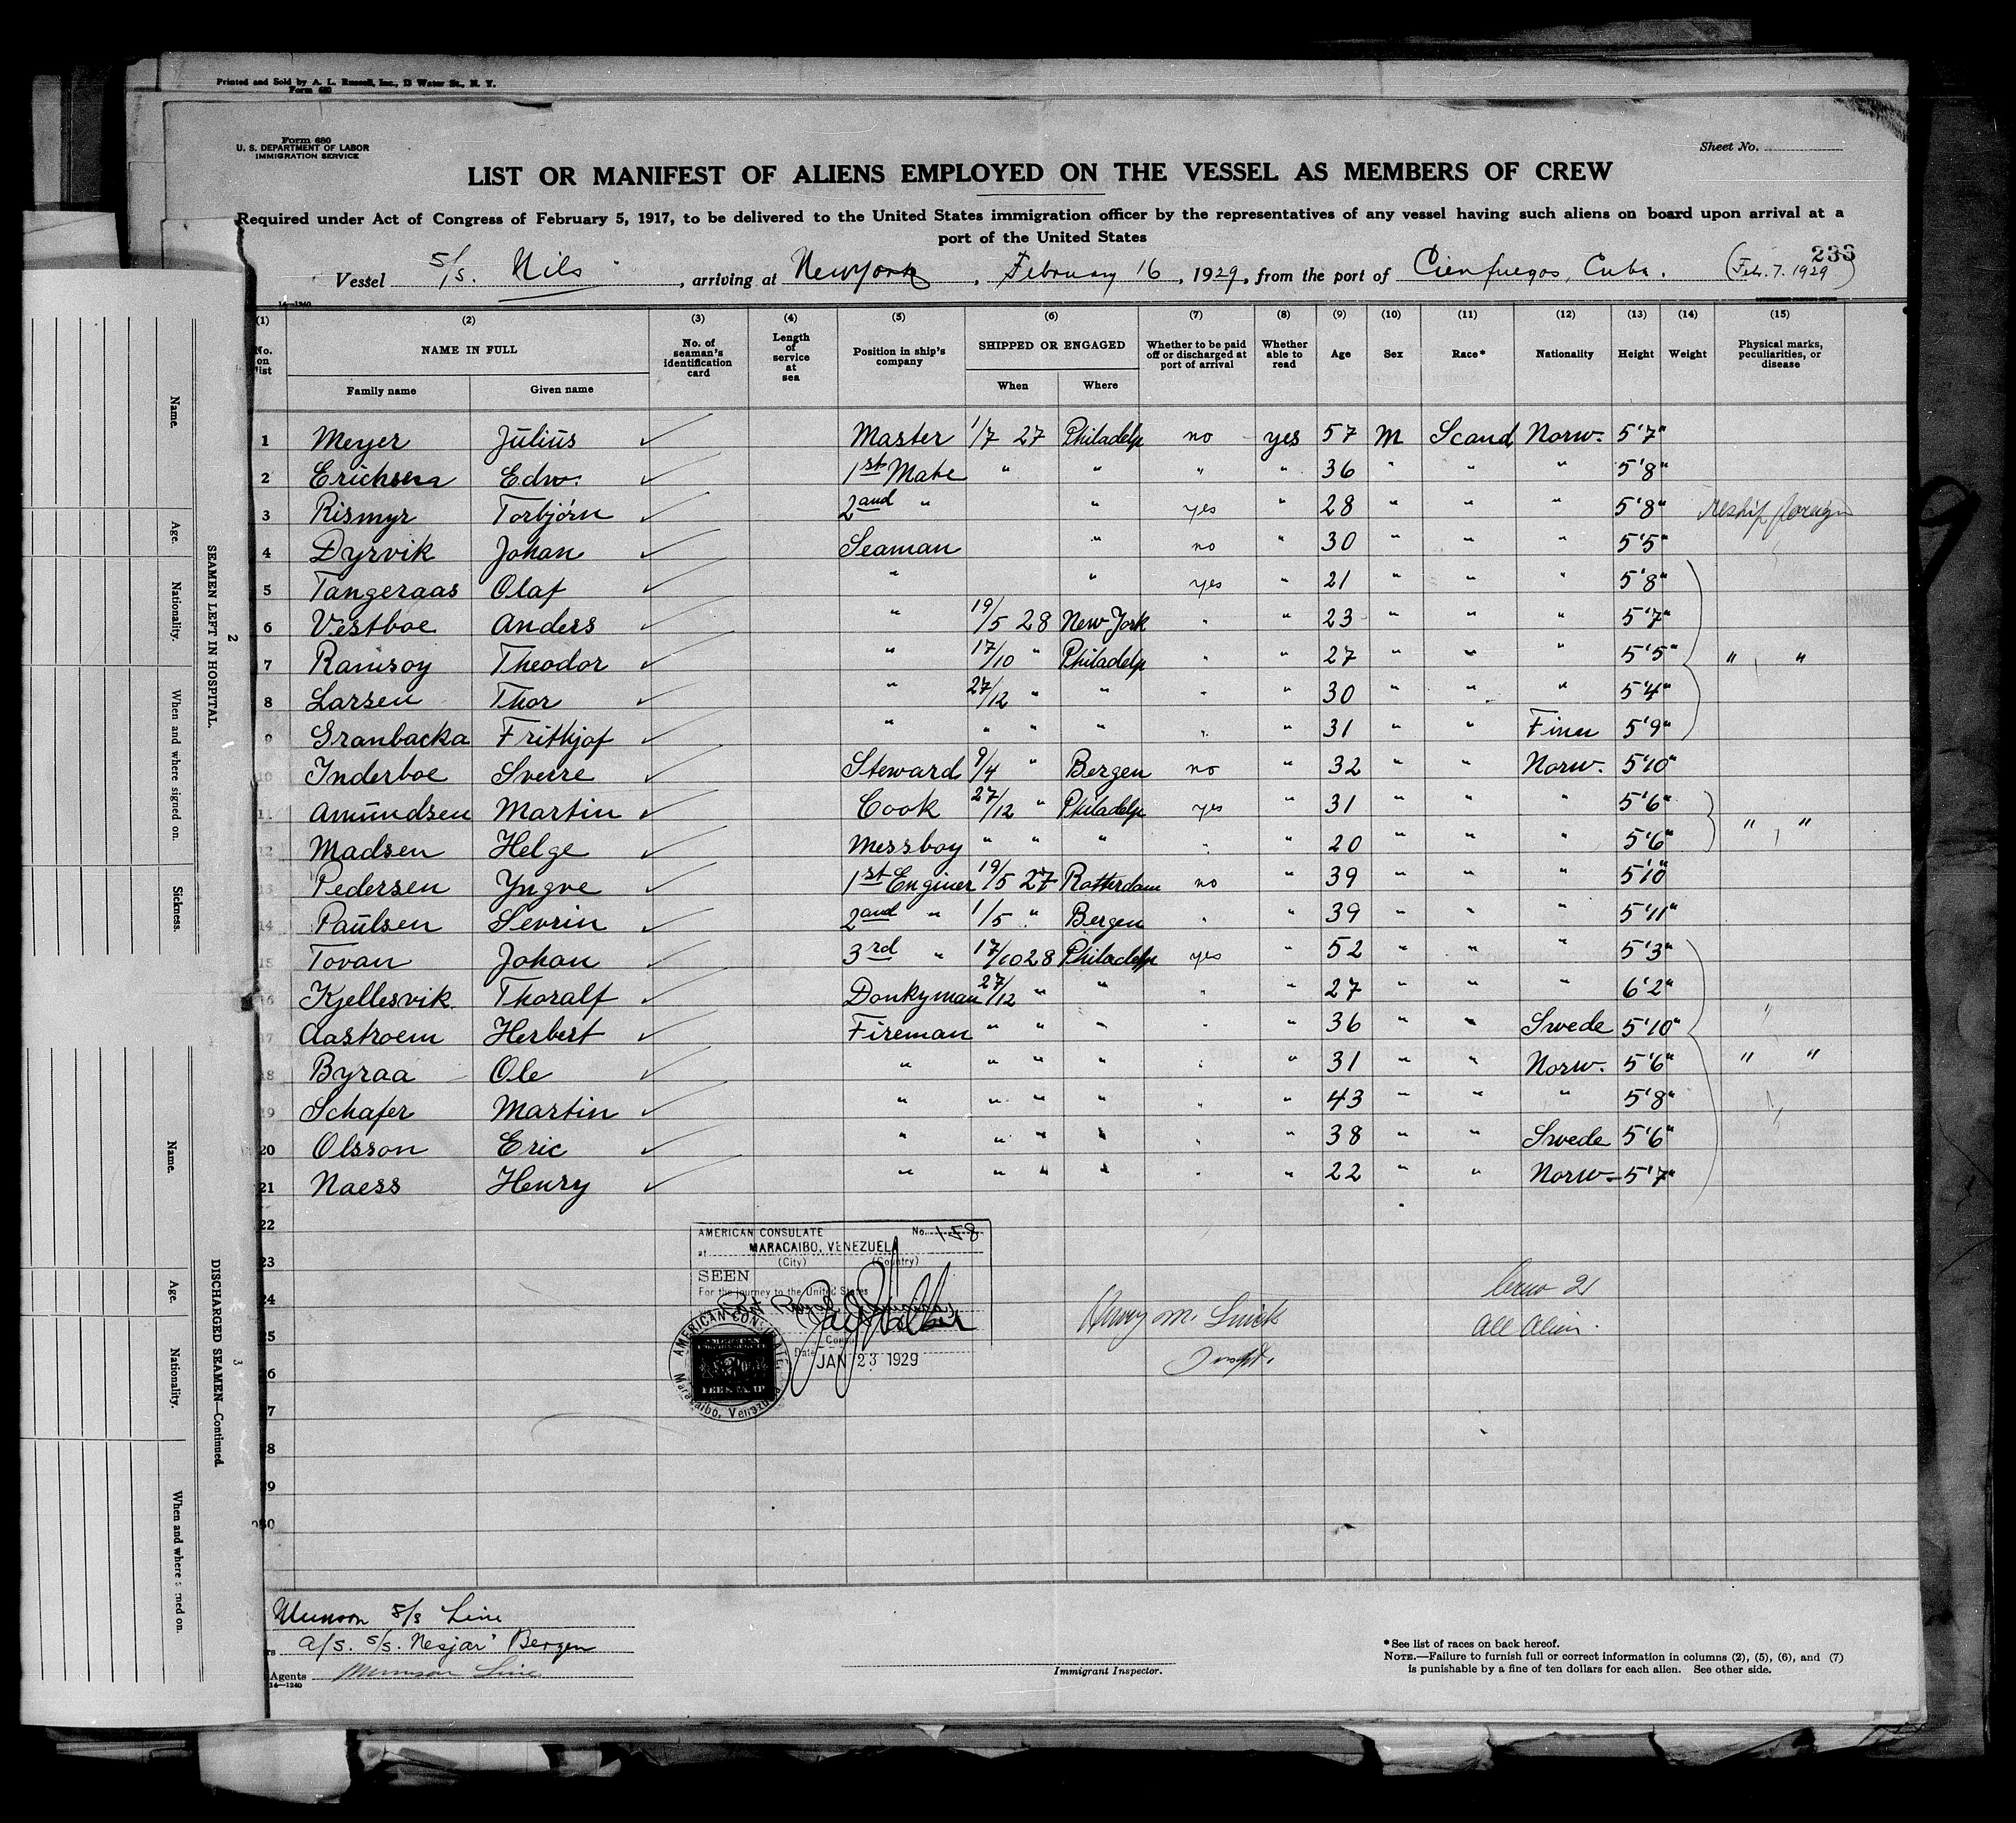 Printed and Sold by A. L. Russell, Inc., 13 Water St., N. Y.
Form 680
Form 680
U. S. DEPARTMENT OF LABOR
IMMIGRATION SERVICE
Sheet No.
LIST OR MANIFEST OF ALIENS EMPLOYED ON THE VESSEL AS MEMBERS OF CREW
Required under Act of Congress of February 5, 1917, to be delivered to the United States immigration officer by the representatives of any vessel having such aliens on board upon arrival at a
port of the United States
236
Vessel S/S. Nils, arriving at New York, February 16, 1929, from the port of Cienfuegos, Cuba. (Feb. 7. 1929)
14—1240
(1) (2) (3) (4) (5) (6) (7) (8) (9) (10) (11) (12) (13) (14) (15)
No. on list NAME IN FULL No. of seaman's identification card Length of service at sea Position in ship's company SHIPPED OR ENGAGED Whether to be paid off or discharged at port of arrival Whether able to read Age Sex Race* Nationality Height Weight Physical marks, peculiarities, or disease
Family name Given name When Where
1 Meyer Julius ✓ Master 1/7 27 Philadelp no yes 57 M Scand Norw. 5'7"
2 Erichsen Edw. ✓ 1st Mate " " " " 36 " " " 5'8"
3 Rismyr Torbjörn ✓ 2and " " yes " 28 " " " 5'8" reship foreign
4 Dyrvik Johan ✓ Seaman " no " 30 " " " 5'5"
5 Tangeraas Olaf ✓ " " yes " 21 " " " 5'8"
6 Vestboe Anders ✓ " 19/5 28 New York " " 23 " " " 5'7"
7 Ramsoy Theodor ✓ " 17/10 " Philadelp " " 27 " " " 5'5" " "
8 Larsen Thor ✓ " 27/12 " " " " 30 " " " 5'4"
9 Granbacka Frithjof ✓ " " " " " " 31 " " Finn 5'9"
10 Inderboe Sverre ✓ Steward 9/4 " Bergen no " 32 " " Norw. 5'10"
11 Amundsen Martin ✓ Cook 27/12 " Philadelp yes " 31 " " " 5'6"
12 Madsen Helge ✓ Messboy " " " " " 20 " " " 5'6" " "
13 Pedersen Yngve ✓ 1st Enginer 19/5 27 Rotterdam no " 39 " " " 5'10"
14 Paulsen Sevrin ✓ 2and " 1/5 " Bergen " " 39 " " " 5'11"
15 Tovan Johan ✓ 3rd " 17/10 28 Philadelp yes " 52 " " " 5'3"
16 Kjellesvik Thoralf ✓ Donkyman 27/12 " " " " 27 " " " 6'2"
17 Aastroem Herbert ✓ Fireman " " " " " 36 " " Swede 5'10"
18 Byraa Ole ✓ " " " " " " 31 " " Norw. 5'6" " "
19 Schafer Martin ✓ " " " " " " 43 " " " 5'8"
20 Olsson Eric ✓ " " " " " " 38 " " Swede 5'6"
21 Naess Henry ✓ " " " " " " 22 " " Norw 5'7"
22
23
24
25
26
27
28
29
30
AMERICAN CONSULATE No. 158
at MARACAIBO, VENEZUELA
(City) (Country)
SEEN
For the journey to the United States
Consul
Date JAN 23 1929
AMERICAN CONSULATE
Maracaibo, Venezuela
Crew 21
All Alien.
Henry M.
Insptr.
Munson S/S Line
A/S. S/S. "Nesjar" Bergen
Agents Munson Line
14—1240
Immigrant Inspector.
*See list of races on back hereof.
NOTE.—Failure to furnish full or correct information in columns (2), (5), (6), and (7)
is punishable by a fine of ten dollars for each alien. See other side.
2
SEAMEN LEFT IN HOSPITAL.
Name.
Age.
Nationality.
When and where signed on.
Sickness.
3
DISCHARGED SEAMEN—Continued.
Name.
Age.
Nationality.
When and where signed on.
9